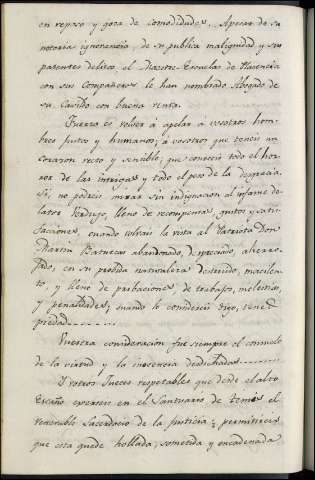 en reposo y goza de comodidades. Apesar de su
notoria ignorancia, de su publica malignidad, y sus
patentes delitos el Maestre-Escuelas de Placencia
con sus Compañeros le han nombrado Abogado de
su Cavildo con buena renta.
Fuerza es volver á apelar á vosotros, hom-
bres justos y humanos; á vosotros que teneis un
corazon recto y sensible; que conoceis todo el hor-
ror de las intrigas y todo el peso de la desgracia.
Si, no podreis mirar sin indignacion al infame de-
lator Verdugo, lleno de recompensas, gustos y satis-
facciones, cuando volvais la vista al Patriota Don
Martin Batuecas abandonado, despreciado, aherro-
jado, en su perdida naturaleza desterrado, macilen-
to, y lleno de privaciones, de trabajos, molestias,
y penalidades; cuando le considereis digo, tened
piedad
Vuestra consideracion fue siempre el consuelo
de la virtud y la inocencia desdichadas
Y vosotros Jueces respetables que desde el alto
Escaño egerceis en el Santuario de temis el
venerable Sacerdocio de la justicia ¿permitireis
que esta quede hollada, sometida y encadenada